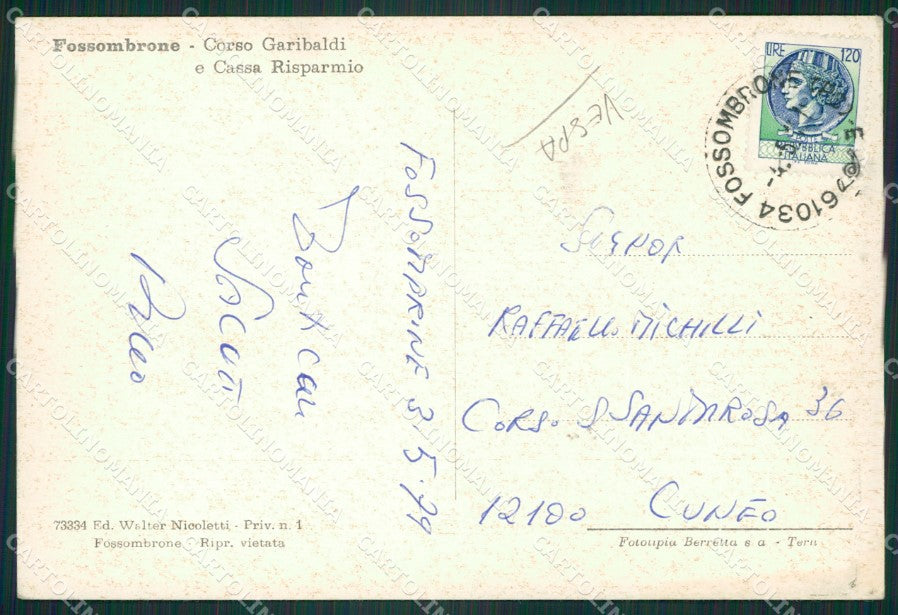 Fossombrone - Corso Garibaldi
e Cassa Risparmio
VESPA
LIRE 120
POSTE
REPUBBLICA
ITALIANA
61034 FOSSOMBRONE
FOSSOMBRINE 3.5.79
Cari
Saluti
SIGNOR
RAFFAELLO MICHILLI
CORSO S SANTAROSA 36
12100 CUNEO
73334 Ed. Walter Nicoletti - Priv. n. 1
Fossombrone - Ripr. vietata
Fototipia Berretta s a - Terni
CARTOLINOMANIA